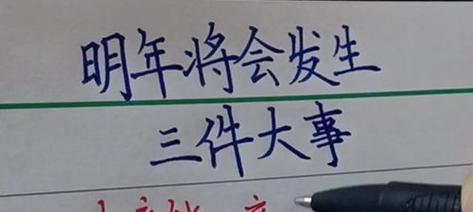 明年将会发生
三件大事